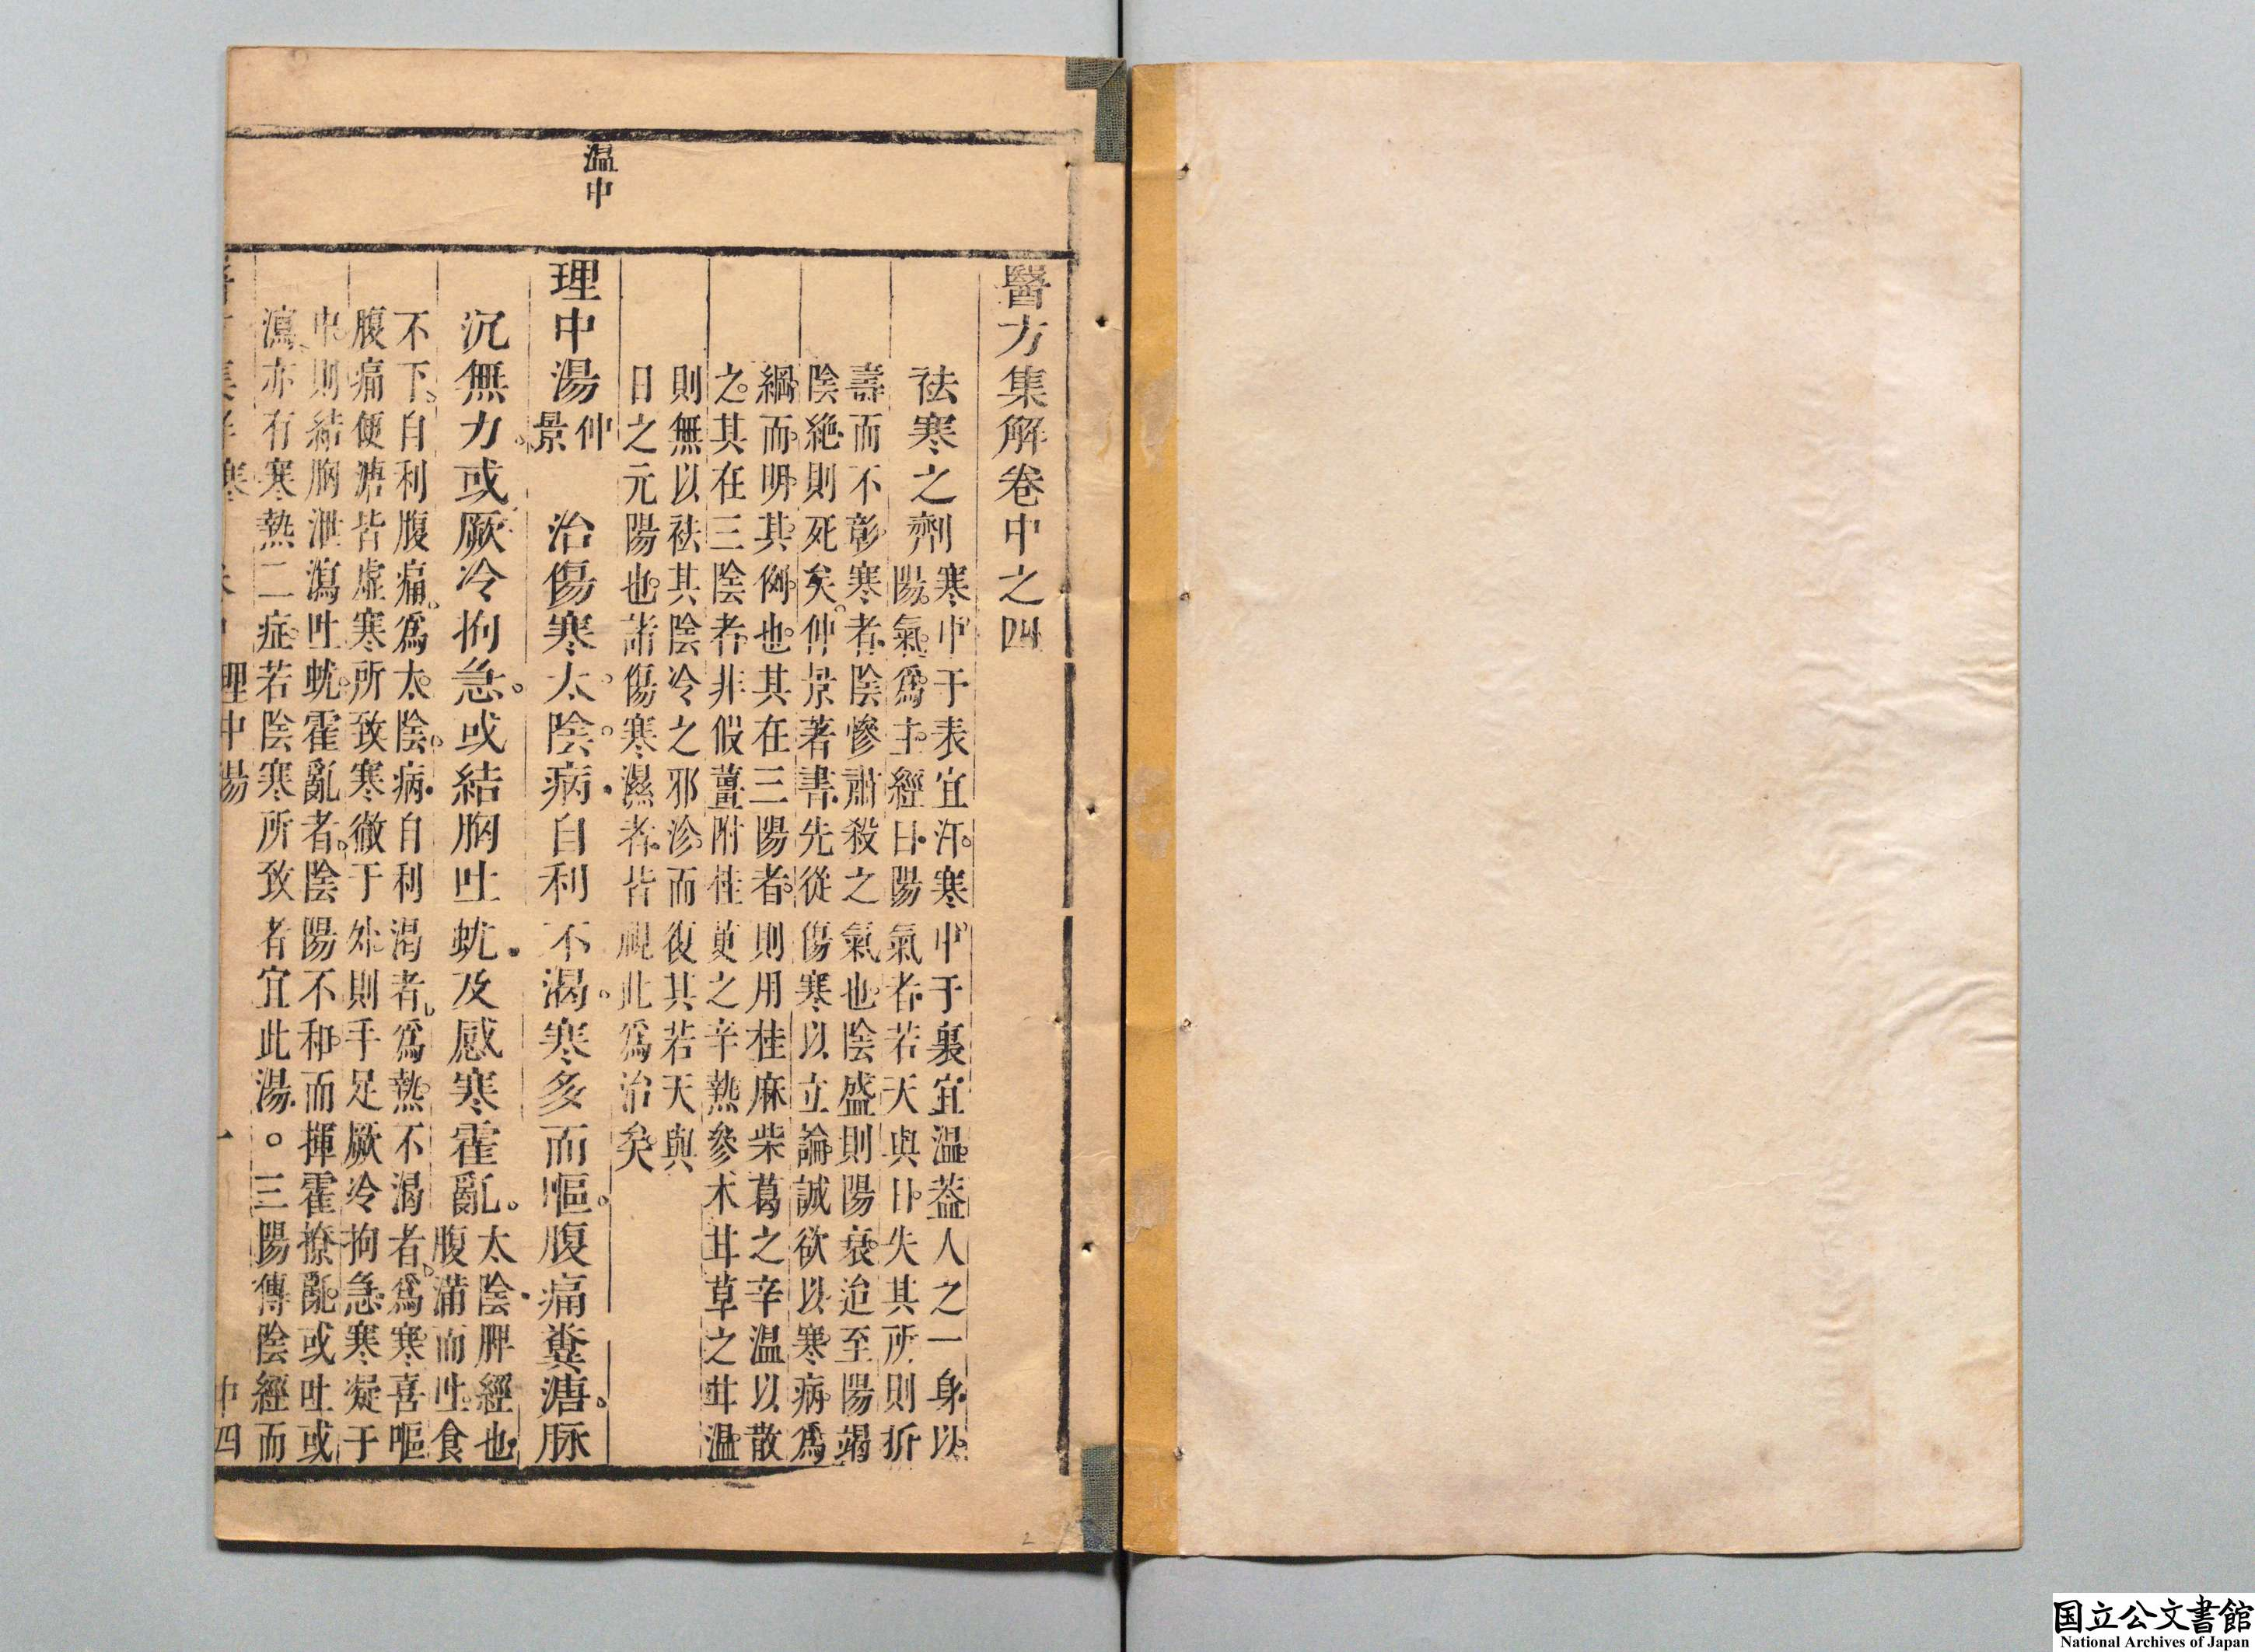 醫方集解卷中之四
祛寒之劑
寒中于表宜汗。寒中于裏宜温。蓋人之一身。以
陽氣爲主。經曰。陽氣者。若天與日。失其所則折
壽而不彰。寒者。陰慘肅殺之氣也。陰盛則陽衰。迨至陽竭
陰絶則死矣。仲景著書。先從傷寒以立論。誠欲以寒病爲
綱而明其例也。其在三陽者。則用桂麻柴葛之辛温以散
之。其在三陰者。非假薑附桂萸之辛熱。參术甘草之甘温。
則無以祛其陰冷之邪沴。而復其若天與
日之元陽也。諸傷寒濕者。皆視此爲治矣
温中
理中湯
仲景
治傷寒太陰病。自利不渴。寒多而嘔。腹痛糞溏。脉
沉無力。或厥冷拘急。或結胸吐蚘。及感寒霍亂。
太陰。脾經也。
腹滿而吐。食
不下。自利腹痛。爲太陰病。自利渴者。爲熱。不渴者。爲寒。喜嘔
腹痛便溏。皆虚寒所致。寒徹于外。則手足厥冷拘急。寒凝于
中。則結胸泄瀉吐蚘。霍亂者。陰陽不和。而揮霍撩亂。或吐或
瀉。亦有寒熱二症。若陰寒所致者。宜此湯。。三陽傳陰經而
理中湯
一
中四
2
国立公文書館
National Archives of Japan